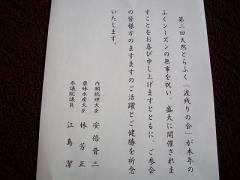 第三回天然とらふく「渡残りの会」が本年の
ふくシーズンの無事を祝い、盛大に開催されま
すことをお喜び申し上げますとともに、ご参会
の皆様方のますますのご活躍とご健勝を祈念
いたします。
内閣総理大臣 安倍晋三
農林水産大臣 林芳正
参議院議員 江島潔